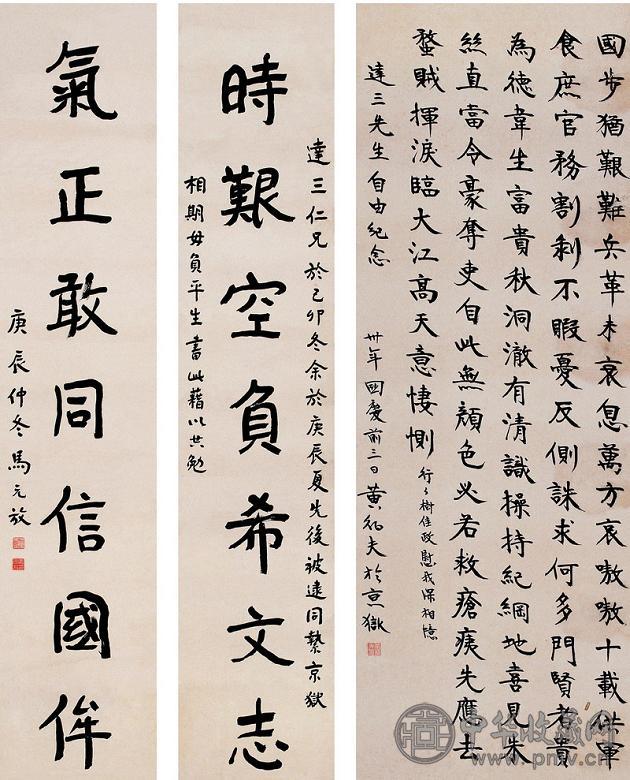 國步猶艱難兵革未衰息萬方哀嗷嗷十載供軍
食庶官務割剝不暇憂反側誅求何多門賢者貴
為德韋生富貴秋洞澈有清識操持紀綱地喜見朱
絲直當令豪奪吏自此無顏色必若救瘡痍先應去
蝥賊揮淚臨大江高天意悽惻行々樹佳政慰我深相憶
達三先生自由紀念
卅年國慶前三日黃夫於京獄
達三仁兄於己卯冬余於庚辰夏先後被逮同繫京獄
時艱空負希文志
相期毋負平生書此藉以共勉
氣正敢同信國侔
庚辰仲冬馬元放
中华收藏网
www.pmv.cn